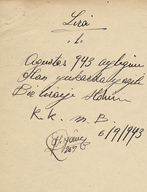 Lira
1.
Ağustos 943 aylığım
olan yukarda yazılı
Bir lirayı aldım
K. K. m. B.
6/9/943